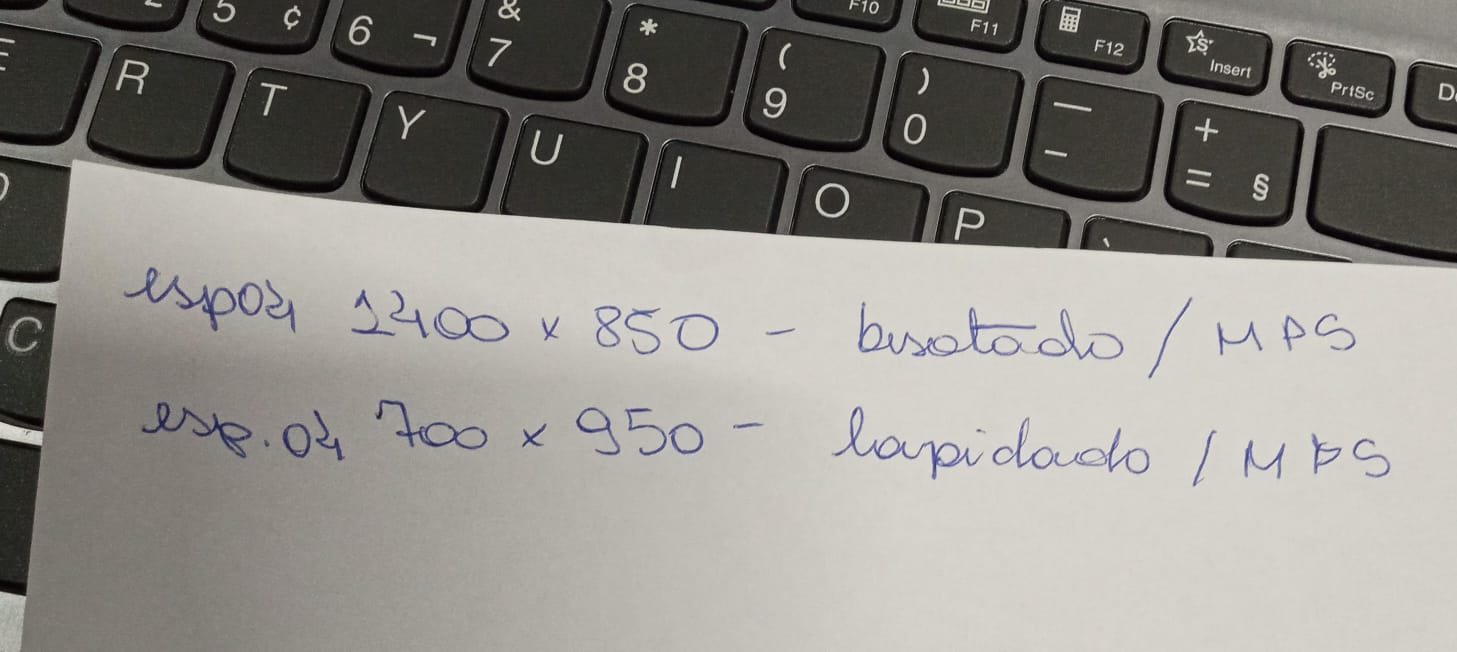 5 ¢ 6 ¬ & 7 * 8 ( 9 ) 0 — - + = §
F10 F11 F12 Insert PrtSc
R T Y U I O P
C
esp04 1400 x 850 - bisotado / MPS
esp.04 700 x 950 - lapidado / MPS